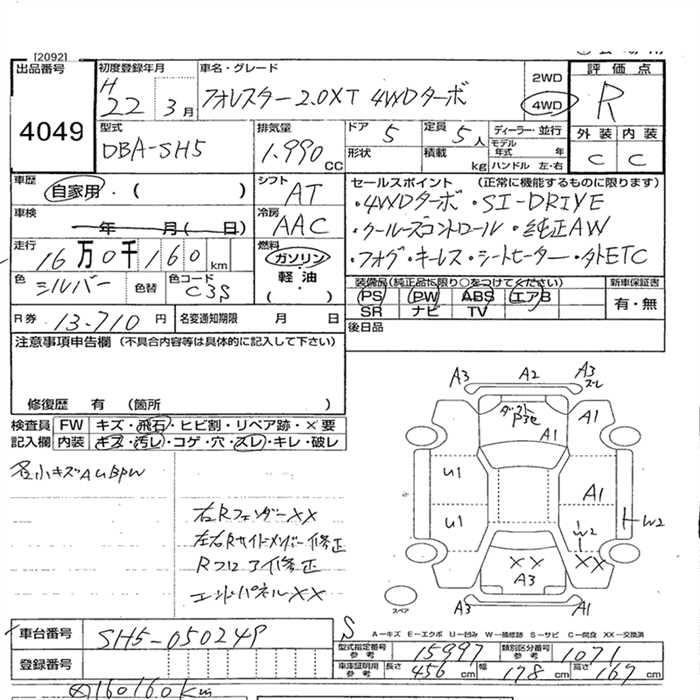 [2092]
出品番号
4049
初度登録年月
H 22 3 月
車名・グレード
フォレスター 2.0XT 4WDターボ
2WD
4WD
評価点
R
外装 内装
C C
型式
DBA-SH5
排気量
1.990 CC
ドア 5
定員 5 人
形状
積載 kg
ディーラー・並行
モデル年式 年
ハンドル 左・右
車歴
自家用・( )
シフト AT
セールスポイント (正常に機能するものに限ります)
・4WDターボ ・SI-DRIVE
・クルーズコントロール ・純正AW
・フォグ・キーレス・シートヒーター・外ETC
車検
年 月( 日)
冷房 AAC
走行
16万0千160 km
燃料
ガソリン
軽・油
( )
色 シルバー
色替
色コード C3S
装備品(純正品に限り○をつけてください)
新車保証書
PS PW ABS エアB
SR ナビ TV
有・無
R券 13.710 円
名変通知期限 月 日
後日品
注意事項申告欄 (不具合内容等は具体的に記入して下さい)
修復歴 有 (箇所 )
検査員
記入欄
FW キズ・飛石・ヒビ割・リペア跡・×要
内装 キズ・汚レ・コゲ・穴・スレ・キレ・破レ
各小キズAUBPW
右Rフェンダー××
左右Rサイドメンバー修正
Rフロア修正
エンドパネル××
A3 A2 A3
スレ
A1
A1
U1
A1
U1
W2
W2
××
A3
××
スペア
S
A－キズ E－エクボ U－凹み W－補修跡 S－サビ C－腐食 XX－交換済
車台番号 SH5-050249
型式指定番号 参考 15997
類別区分番号 参考 1071
登録番号
車庫証明用 参考 長さ 456 cm 幅 178 cm 高さ 167 cm
160160km